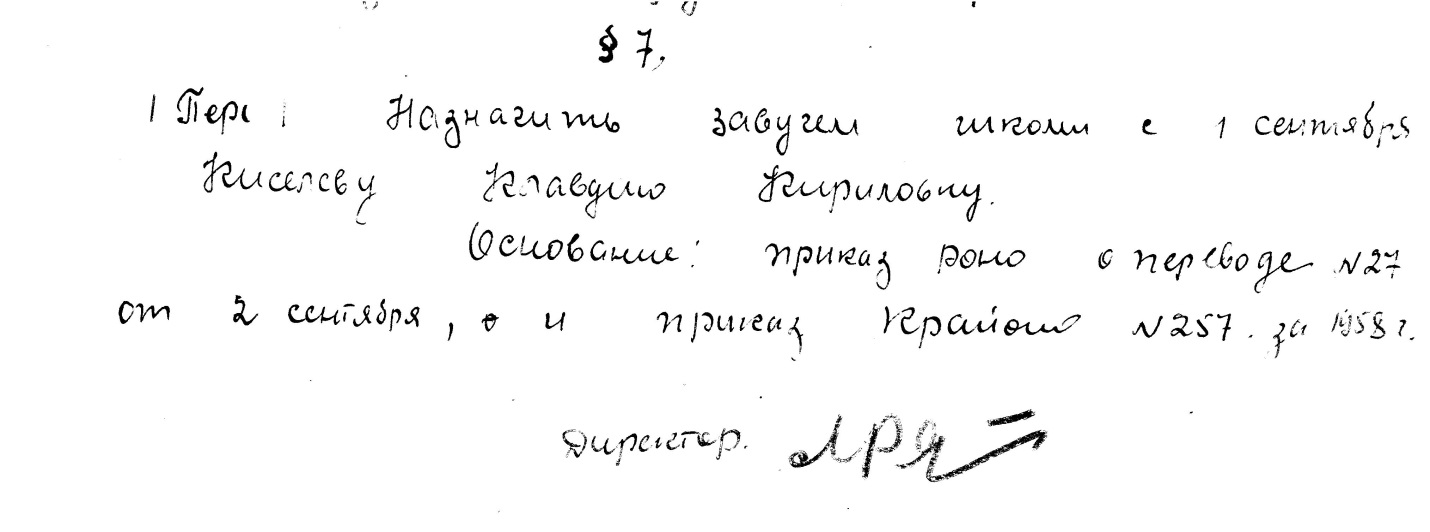 § 7.
Назначить завучем школы с 1 сентября
Киселеву Клавдию Кириловну.
Основание: приказ роно о переводе N27
от 2 сентября, и приказ Крайоно N257. за 1958 г.
Директор.